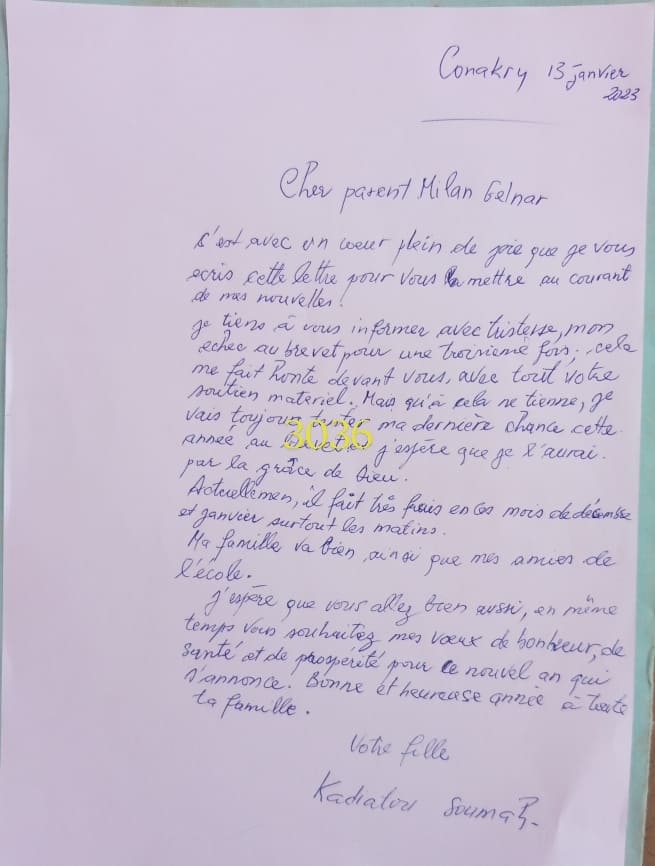 Conakry 13 janvier
2023
Cher parent Milan Gelnar
C'est avec un coeur plein de joie que je vous
ecris cette lettre pour vous mettre au courant
de mes nouvelles.
je tiens à vous informer avec tristesse, mon
echec au brevet pour une troisième fois; cela
me fait honte devant vous, avec tout votre
soutien materiel. Mais qu'à cela ne tienne, je
vais toujours tenter ma dernière chance cette
3036
année au j'espère que je l'aurai.
par la grâce de Dieu.
Actuellemen, il fait très frais en ces mois de décembre
et janvier surtout les matins.
Ma famille va bien ainsi que mes amies de
l'école.
j'espère que vous allez bien aussi, en même
temps vous souhaitez mes vœux de bonheur, de
santé et de prospérité pour le nouvel an qui
s'annonce. Bonne et heureuse année à toute
ta famille.
Votre fille
Kadiatou